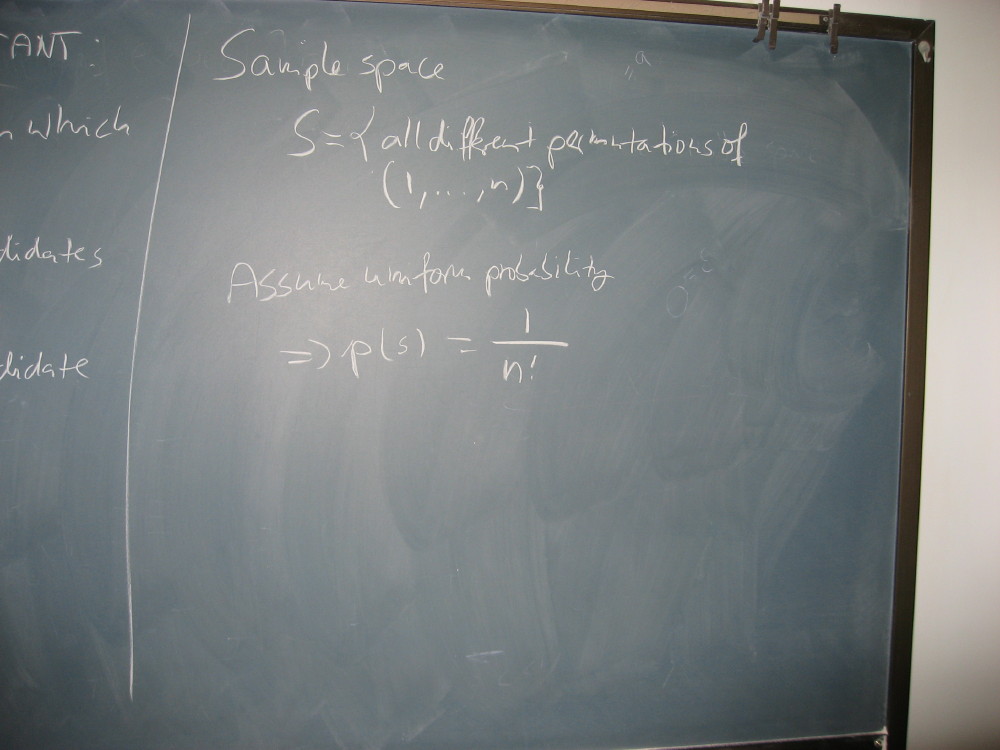 TANT:
n which
didates
didate
Sample space
S = { all different permutations of
(1,...,n)}
Assume uniform probability
=> p(s) = 1/n!